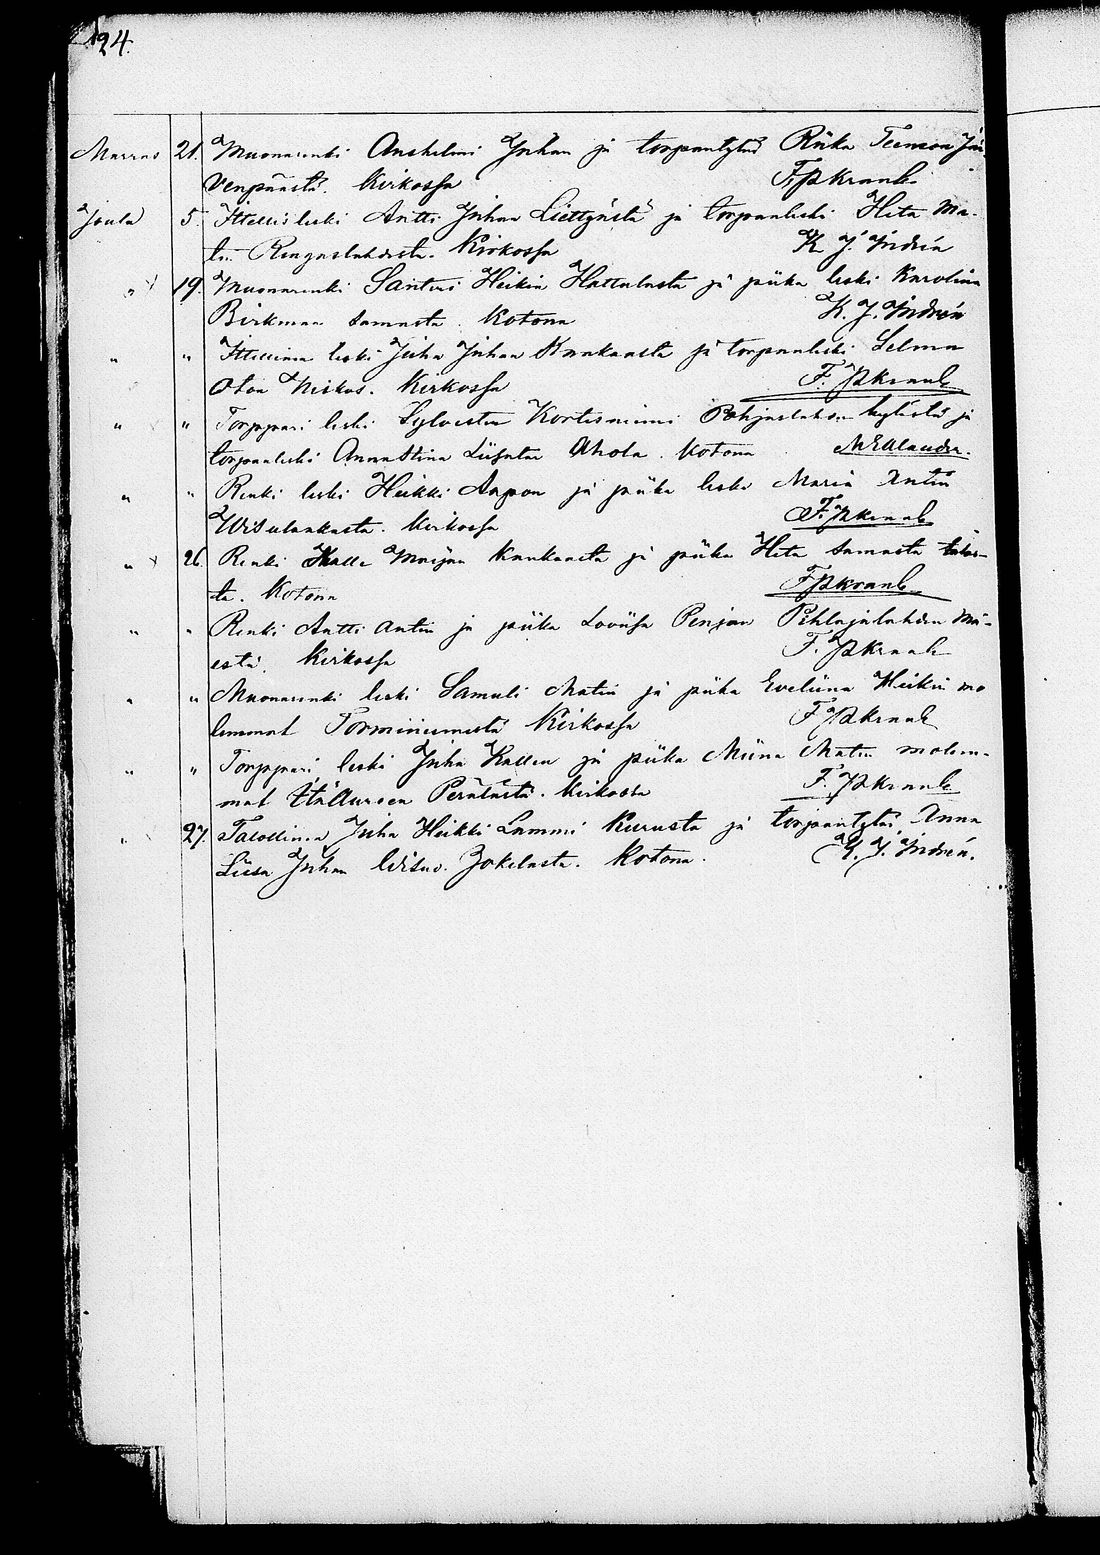 124.
Marras 21. Muonarenki Anshelmi Juhan ja torpantytär Riika Teemon Jär-
venpäästä. Kirkossa F. Pkrank
Joulu 5. Itsellisleski Antti Juhan Liettyästä ja torpanleski Heta Ma-
tin Ringaslahdesta. Kirkossa K. J. Indrén
" 19. Muonarenki Santeri Heikin Hattulasta ja piika leski Karoliina
Birkman samasta. Kotona K. J. Indrén
" " Itsellinen leski Juha Juhan Kankaasta ja torpanleski Selma
Oton Kirkossa F. Pkrank
" " Torppari leski Sylvester Kortesniemi Pohjaslahden kylästä ja
torpanleski Anna Stina Liisatar Ahola. Kotona
" " Renki leski Heikki Aapon ja piika leski Maria Antin
Kirkossa F. Pkrank
" 26. Renki Kalle Maijan Kankaasta ja piika Heta samasta talos-
ta. Kotona F. Pkrank
" " Renki Antti Antin ja piika Loviisa Penjan Pihlajalahden Mä-
estä. Kirkossa F. Pkrank
" " Muonarenki leski Samuli Matin ja piika Eveliina Heikin mo
lemmat Torminiemestä Kirkossa F. Pkrank
" " Torppari leski Juha Kallen ja piika Miina Matin molem-
mat Perälästä. Kirkossa F. Pkrank
" 27. Talollinen Juha Heikki Lammi Kurusta ja torpantytär Anna
Liisa Juhan Kotona. K. J. Indrén.